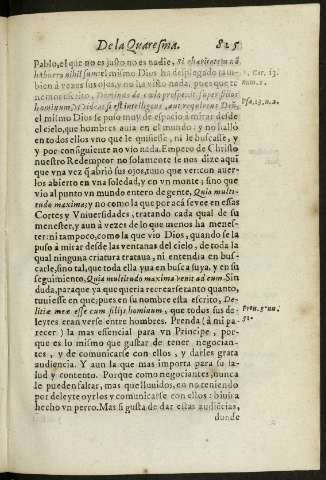 De la Quaresma. 825
Pablo, el que no es justo no es nadie, Si charitatem nõ
habuero nihil sum: el mismo Dios ha desplegado tam-
bien à vezes sus ojos, y no ha visto nada, pues que te-
nemos escrito, Dominus de cœlo prospexit super filios
hominum, vt videat si est intelligens, aut requirens Deũ,
el mismo Dios se puso muy de espacio à mirar desde
el cielo, que hombres auia en el mundo: y no hallò
en todos ellos vno que le quisiesse, ni le buscasse, y
por consiguiente no vio nada. Empero de Christo
nuestro Redemptor no solamente se nos dize aqui
que vna vez q̃ abriò sus ojos, tuuo que ver con auer-
los abierto en vna soledad, y en vn monte; sino que
vio al punto vn mundo entero de gente, Quia multi-
tudo maxima; y no como la que por acà se vee en essas
Cortes y Vniuersidades, tratando cada qual de su
menester, y aun à vezes de lo que menos ha menes-
ter: ni tampoco, como la que vio Dios, quando se la
puso à mirar desde las ventanas del cielo, de toda la
qual ninguna criatura trataua, ni entendia en bus-
carle, sino tal, que toda ella yua en busca suya, y en su
seguimiento, Quia multitudo maxima venit ad eum. Sin
duda, para que ya que queria recrearse tanto quanto,
tuuiesse en que; pues en su nombre esta escrito, De-
litiæ meæ esse cum filijs hominum, que todos sus de-
leytes eran verse entre hombres. Prenda (à mi pa-
recer) la mas essencial para vn Principe, por-
que es lo mismo que gustar de tener negocian-
tes, y de comunicarse con ellos, y darles grata
audiencia. Y aun la que mas importa para su sa-
lud y contento. Porque como negociantes, nunca
le pueden faltar, mas que lluuidos, en no teniendo
por deleyte oyrlos y comunicarse con ellos: biuira
hecho vn perro. Mas si gusta de dar estas audiẽcias,
donde
1. Cor. 13.
num. 2.
Psa. 13. n. 2.
Prou. 8. nu.
31.